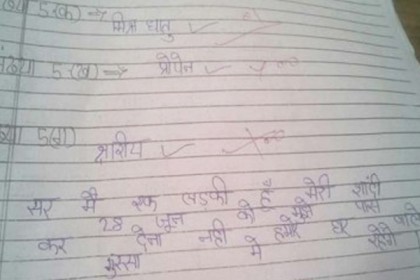 5(क) ⇒ मिश्र धातु
5(ख) ⇒ प्रोपेन
5(ग)
क्षारीय
सर मैं एक लड़की हूँ मेरी शादी
28 जून को है मुझे पास
कर देना नहीं हमारे घर वाले
गुस्सा में होंगे